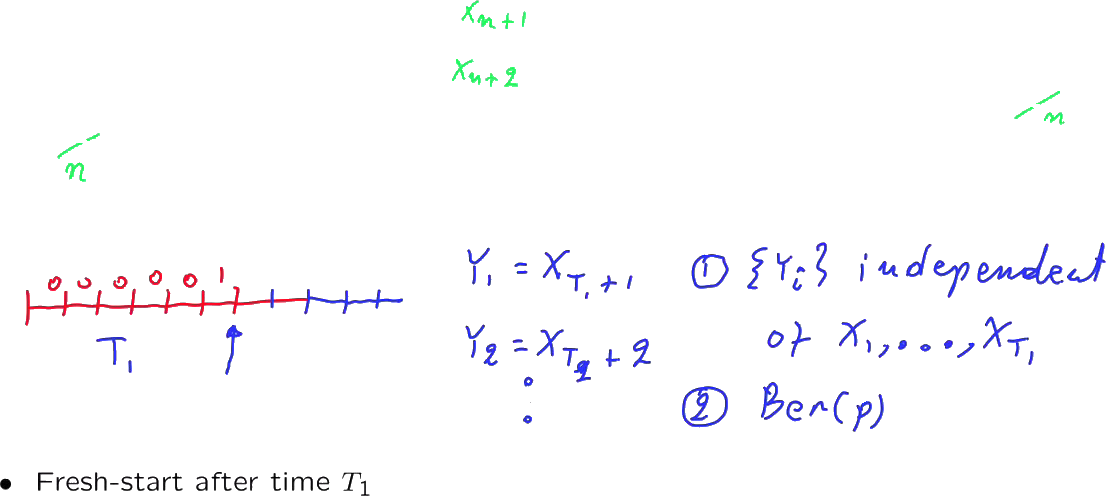 X_{n+1}
X_{n+2}
n
n
0 0 0 0 0 1
T_1
Y_1 = X_{T_1+1}
① {Y_i} independent
Y_2 = X_{T_2+2}
of X_1, ..., X_{T_1}
② Ber(p)
• Fresh-start after time T_1